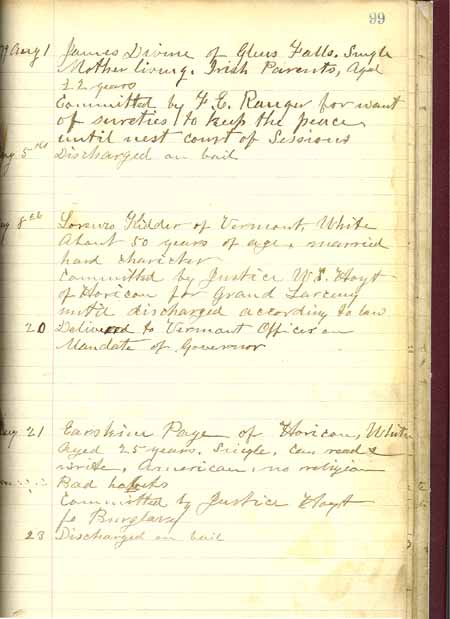 99
Aug 1 James Divine of Glens Falls. Single
Mother living. Irish Parents, Aged
22 years
Committed by F. E. Ranger for want
of sureties to keep the peace
until next court of Sessions
5th Discharged on bail
8th Lorenzo Kidder of Vermont, White
About 50 years of age, married
hard charicter
Committed by Justice W. S. Hoyt
of Horicon for Grand Larceny
until discharged according to law
20 Delivered to Vermont Officer on
Mandate of Governor
Aug 21 Earskine Page of Horicon, White
Aged 25 years. Single, Can read &
write, American, no religion
Bad habits
Committed by Justice Hoyt
fo Burglary
23 Discharged on bail